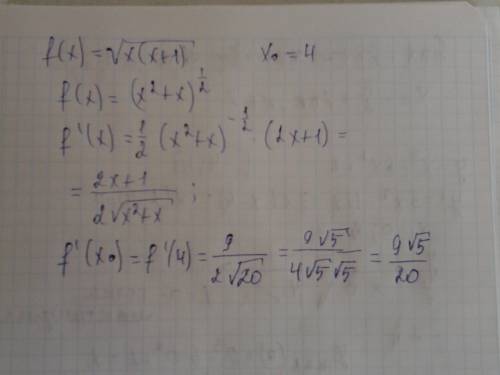 f(x) = √(x(x+1))    x₀ = 4
f(x) = (x²+x)^(1/2)
f'(x) = 1/2 (x²+x)^(-1/2) (2x+1) =
= (2x+1)/(2√(x²+x)) ;
f'(x₀) = f'(4) = 9/(2√20) = 9√5/(4√5√5) = 9√5/20